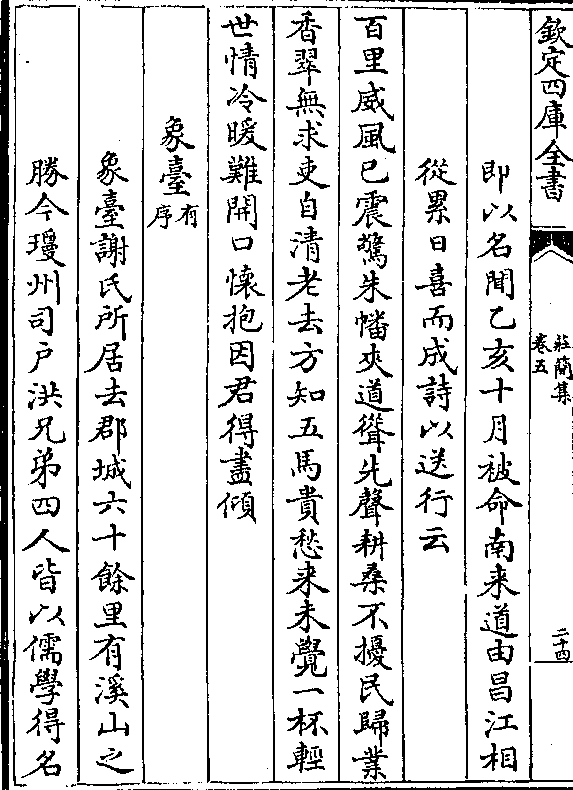 欽定四庫全書
莊簡集
卷五
二十四
即以名聞乙亥十月被命南来道由昌江相
從累日喜而成詩以送行云
百里威風已震驚朱幡夾道聳先聲耕桑不擾民歸業
香翠無求吏自清老去方知五馬貴愁来未覺一杯輕
世情冷暖難開口懷抱因君得盡傾
象臺有序
象臺謝氏所居去郡城六十餘里有溪山之
勝今瓊州司户洪兄弟四人皆以儒學得名